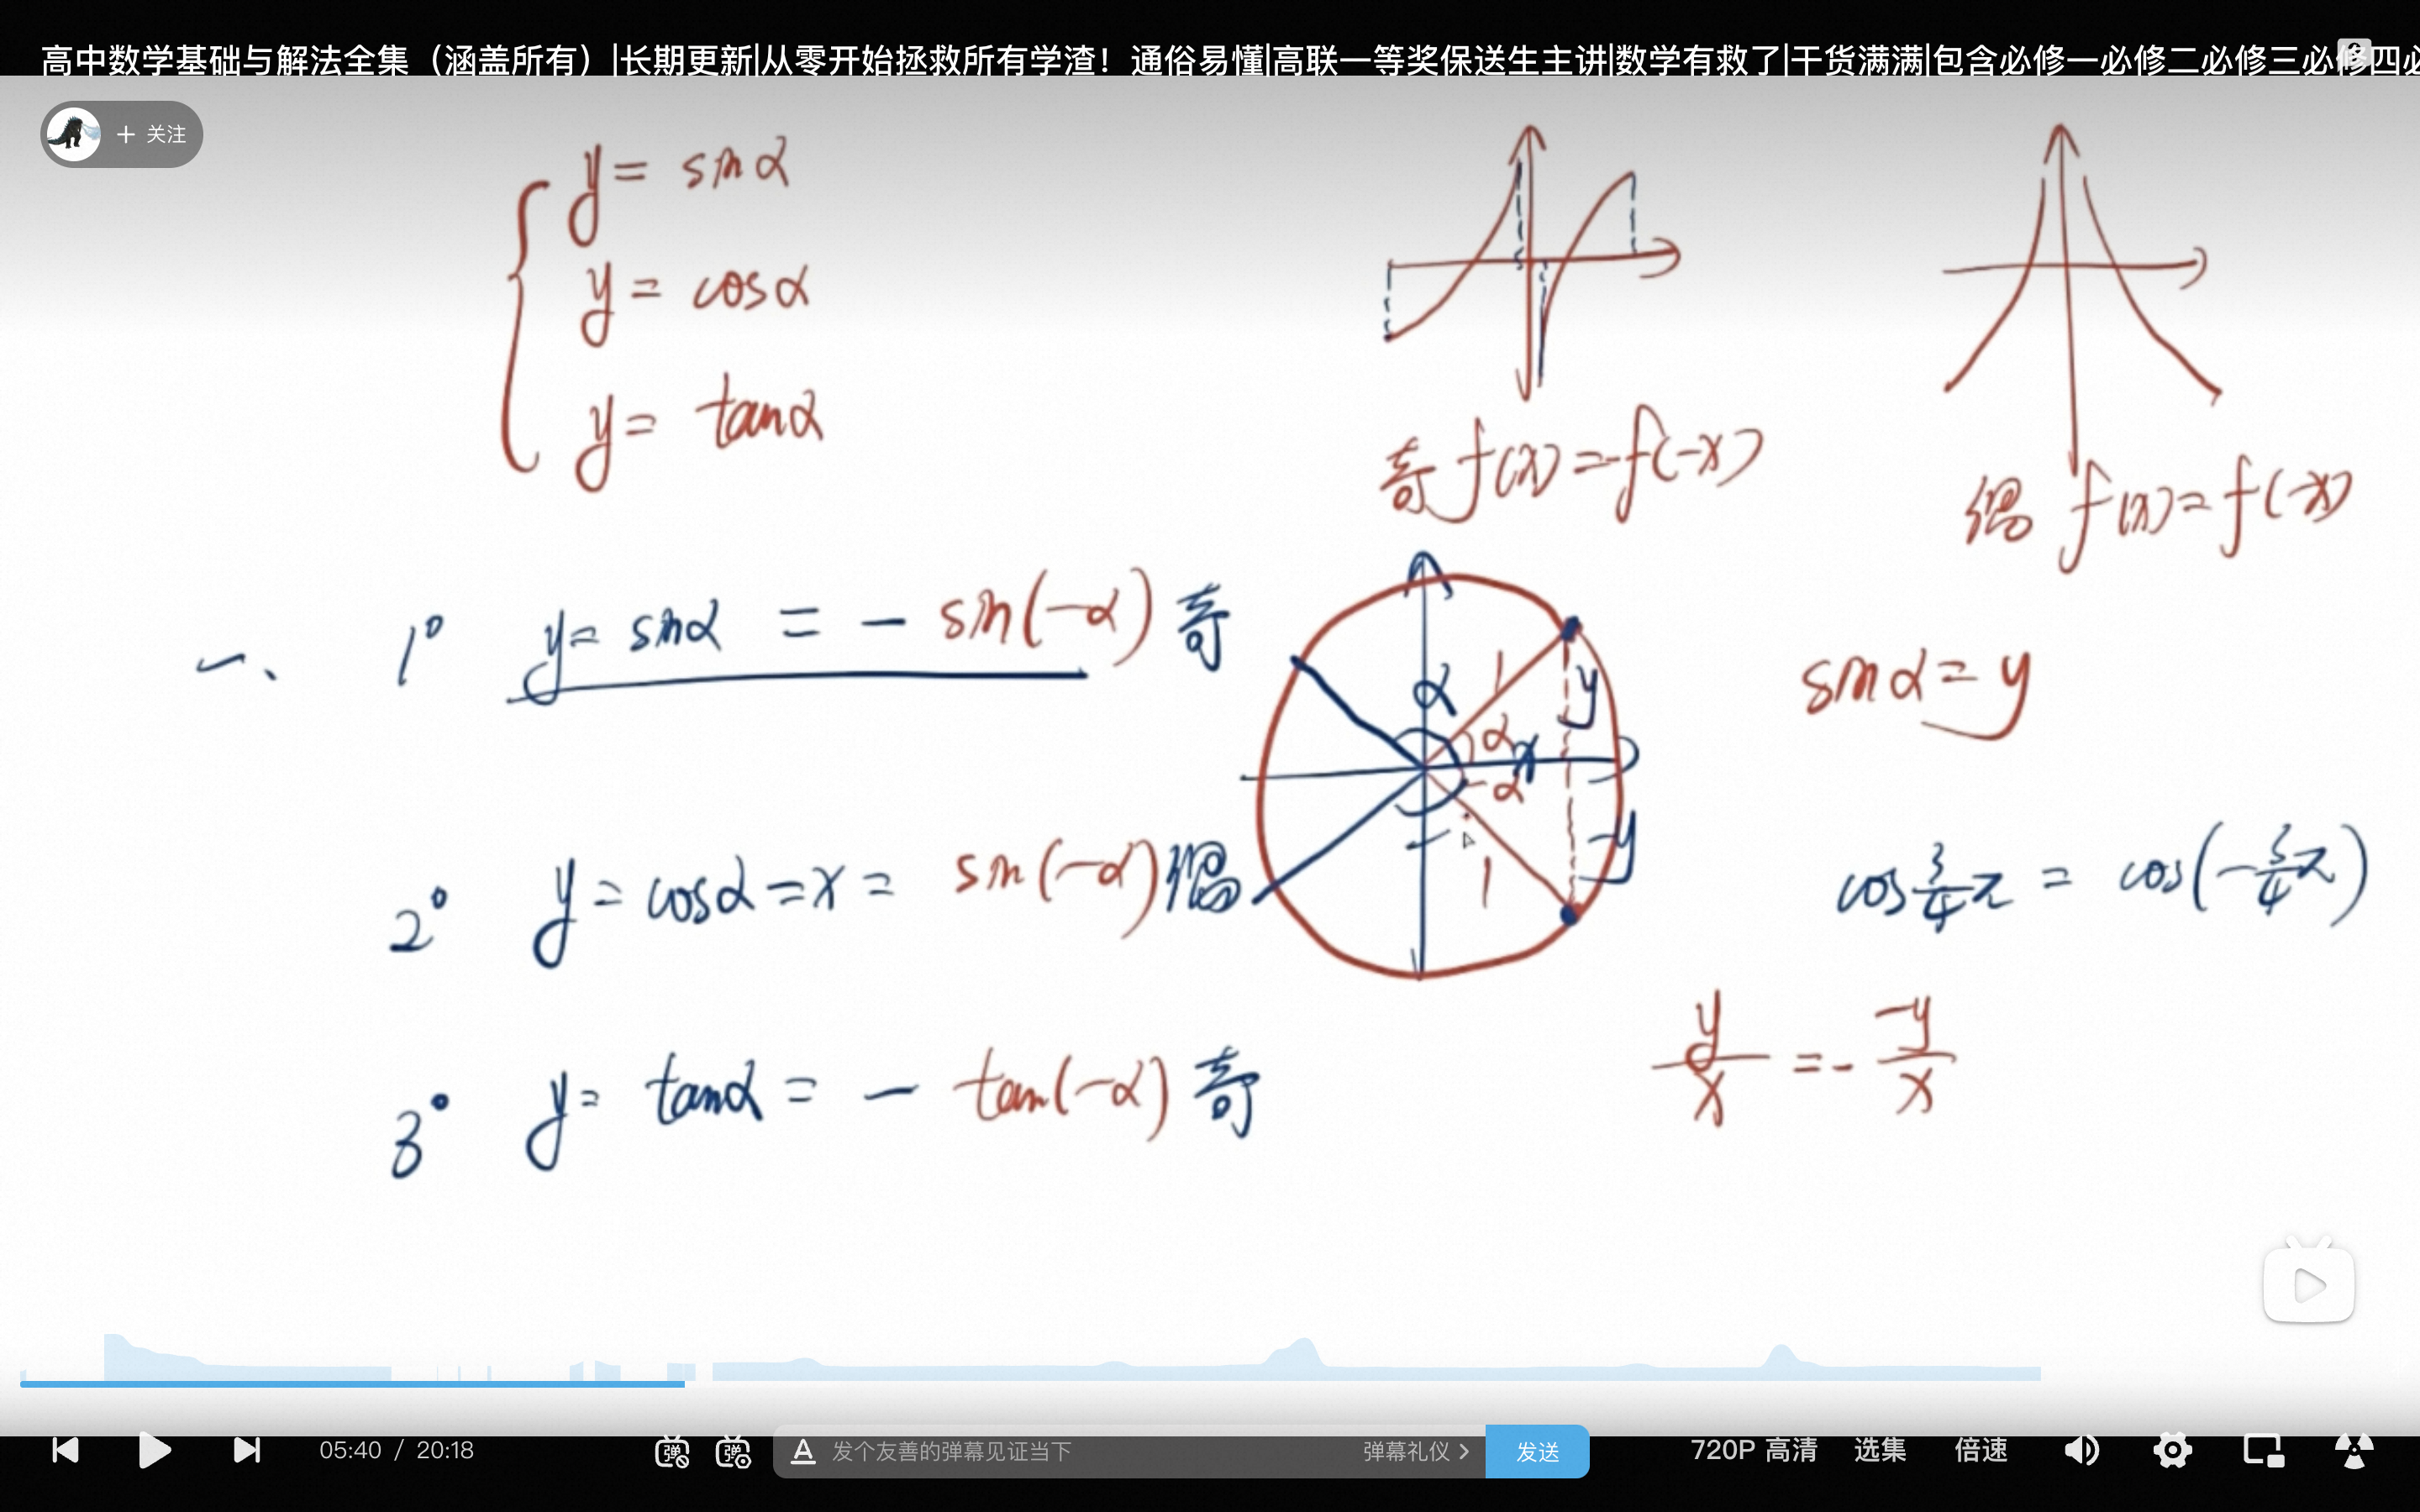 高中数学基础与解法全集（涵盖所有）|长期更新|从零开始拯救所有学渣！通俗易懂|高联一等奖保送生主讲|数学有救了|干货满满|包含必修一必修二必修三必修四必
+ 关注
y = sinα
y = cosα
y = tanα
奇 f(x) = -f(-x)
偶 f(x) = f(-x)
一、 1° y = sinα = - sin(-α) 奇
α 1 y
α x
-α
-y
1
sinα = y
2° y = cosα = x = sin(-α) 偶
cos 3/4 π = cos(- 3/4 π)
3° y = tanα = - tan(-α) 奇
y/x = - -y/x
05:40 / 20:18
弹 弹
A 发个友善的弹幕见证当下
弹幕礼仪 >
发送
720P 高清
选集
倍速